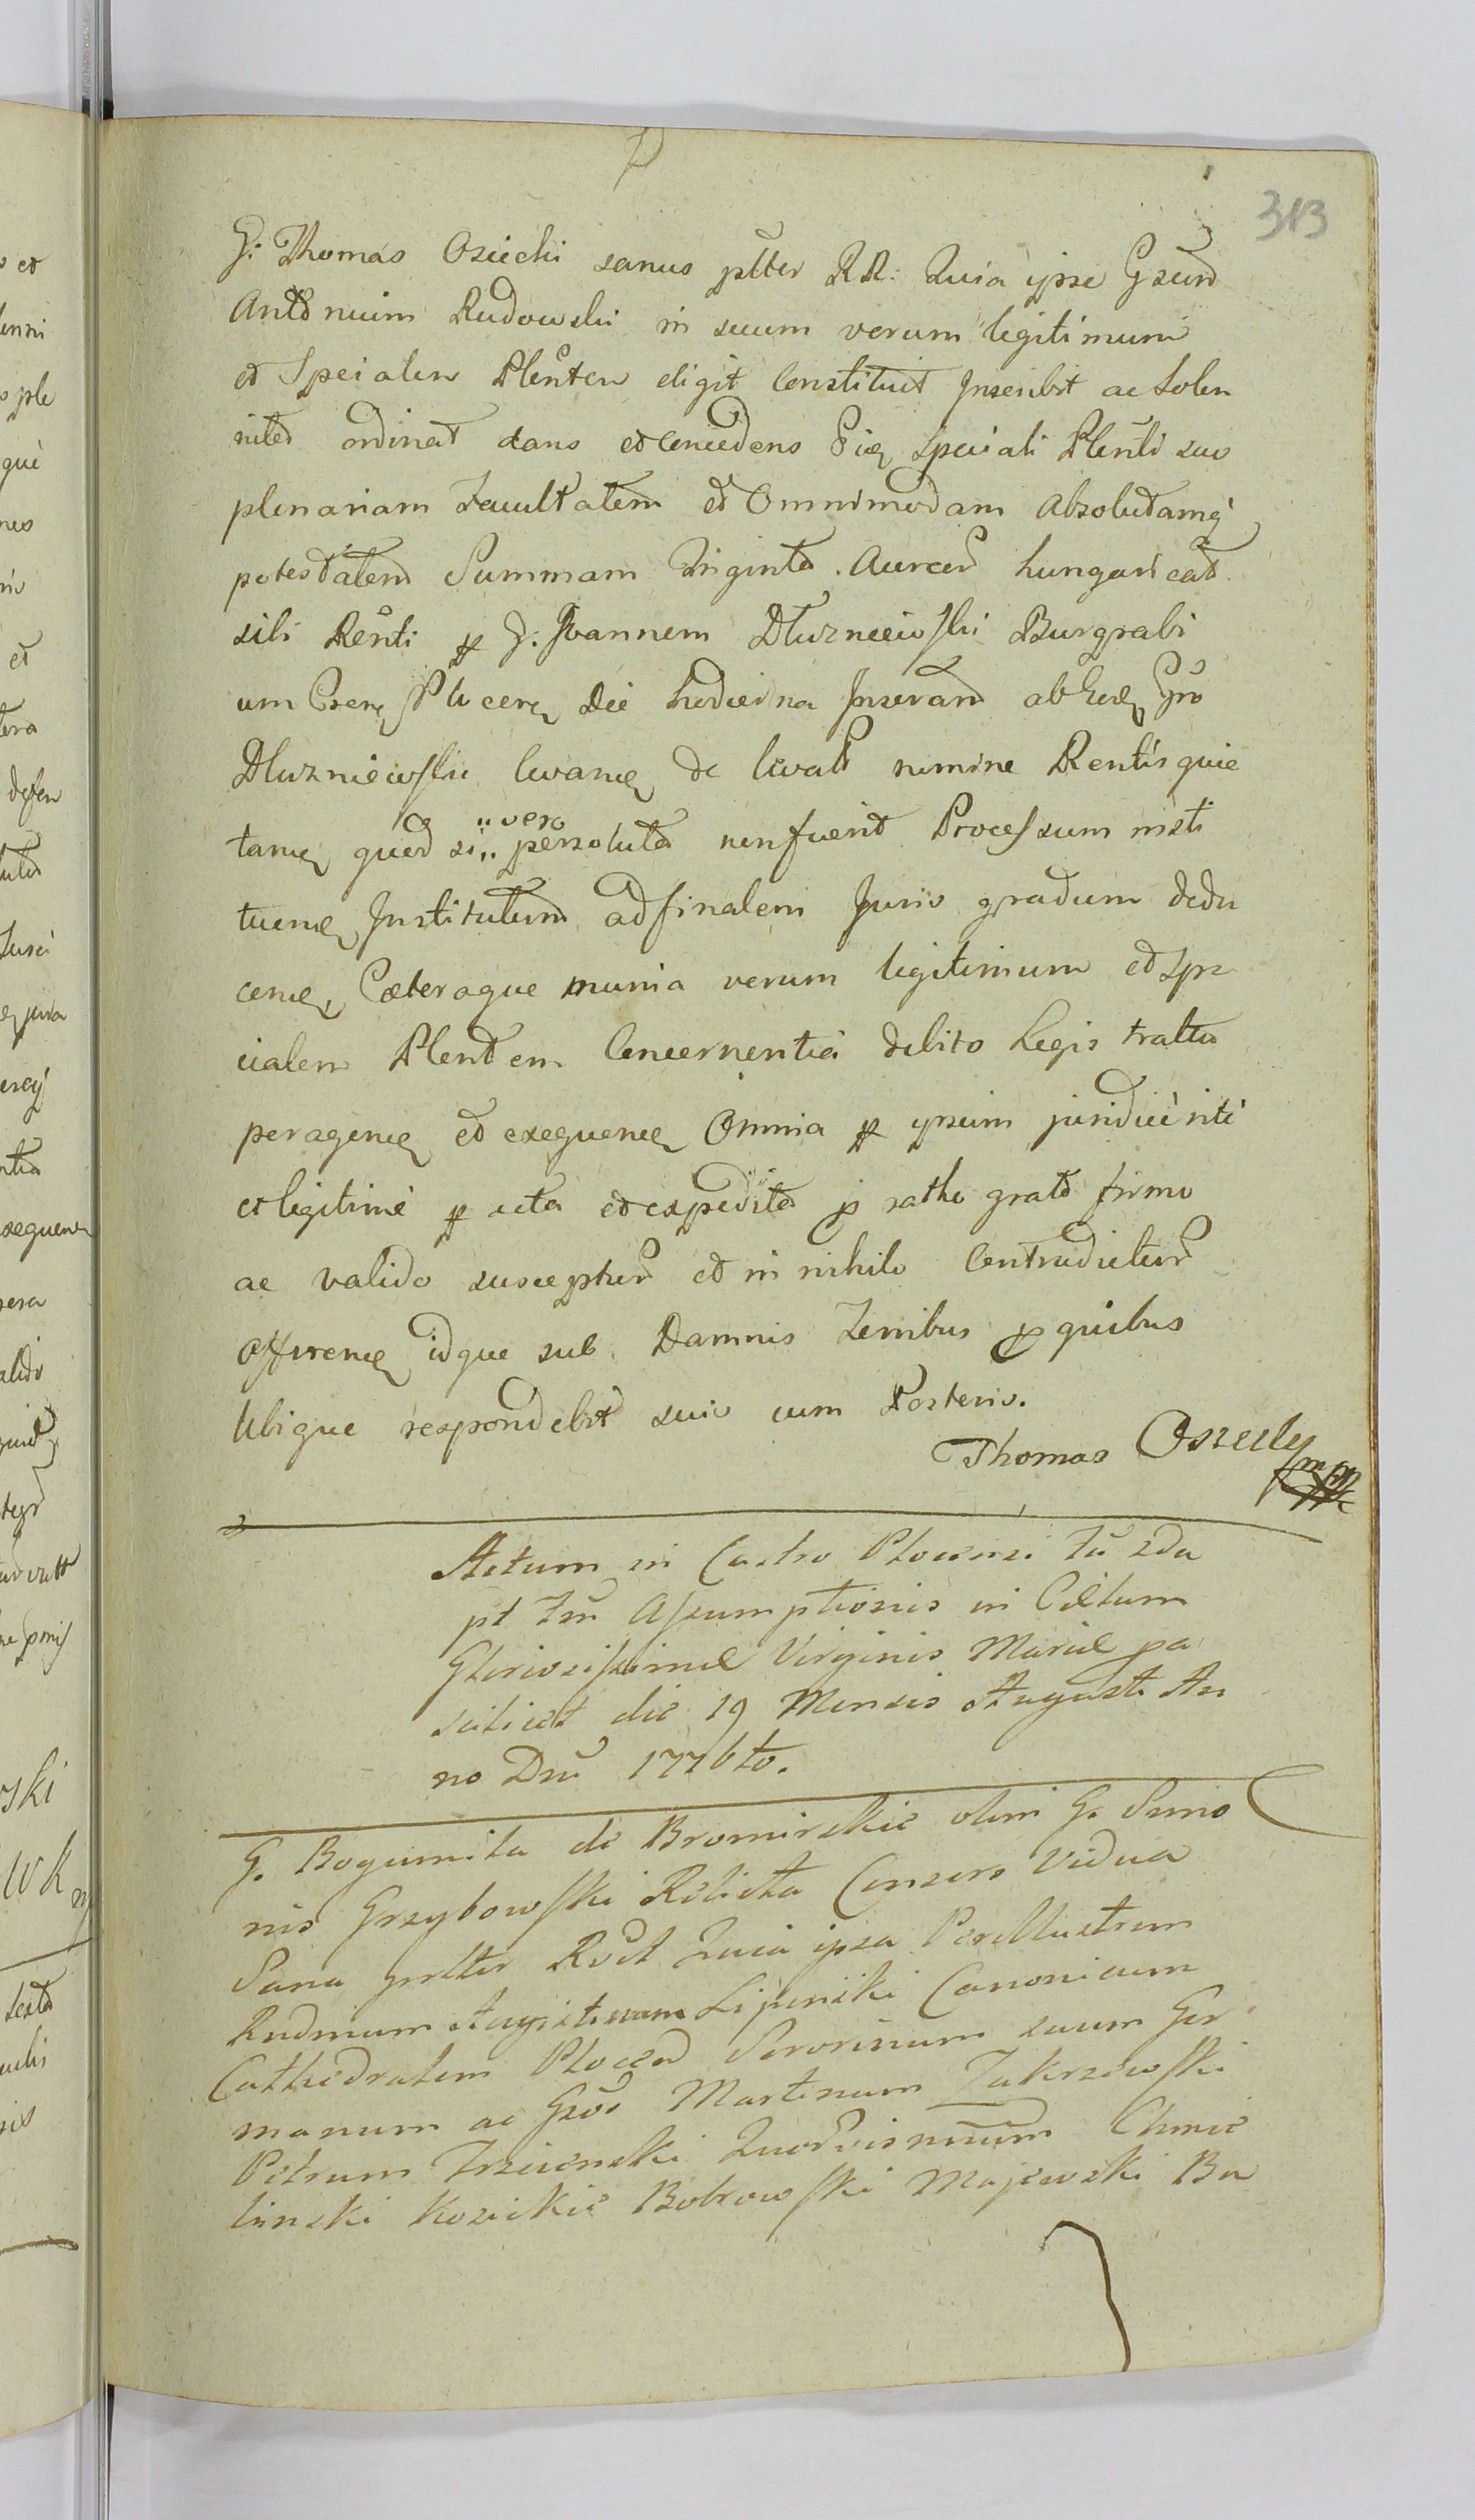 313
G: Thomas Osiecki sanus pltter RR: Quia ipse Gsum
Antonium Rudowski in suum verum legitimum
et Specialem Plentem eligit Constituit Inscribit ac Solen
niter ordinat dans et Concedens Eidem Speciali Plenti suo
plenariam Facultatem et Omnimodam Absolutamq
potestatem Summam Triginta Aureor hungarical
sibi Renti p G. Joannem Dłuzniewski Burgrabi
um Csem Plocen Die hodierna Inscram ab Eodem Gso
Dłuzniewski levand de levatis nomine Rentis quie
tand quod si vero persoluta non fuerit Processum insti
tuend Institutum ad finalem Juris gradum dedu
cend Cæteraque munia verum legitimum et Spe
cialem Plentem Concernentia debito Legis trattu
peragend et exequend Omnia p ipsum juridicè ritè
et legitimè p acta et expedita p ratho grato firmo
ac valido suscepturr et in nihilo Contradictur
offerend idque sub Damnis Terribus p quibus
Ubique respondebit suis cum Posteris.
Thomas Osiecky mpp
Actum in Castro Plocensi fer 2da
pt Fm Assumptionis in Cælum
Gloriosissimæ Virginis Mariæ pa
scilicet die 19 Mensis Augusti An
no Dni 1776to.
G. Bogumila de Bromirskie olim G. Simo
nis Grzybowski Relicta Consors Vidua
Sana pntter Rvit Quia ipsa Perillustrem
Rndmum Augustinum Lipinski Canonicum
Cathedralem Plocen Sororinum suum Ger
manum ac Gsos Martinum Zakrzewski
Petrum Trzcienski Quodvismium Chmie
linski Kosickie Bobrowski Majewski Ba